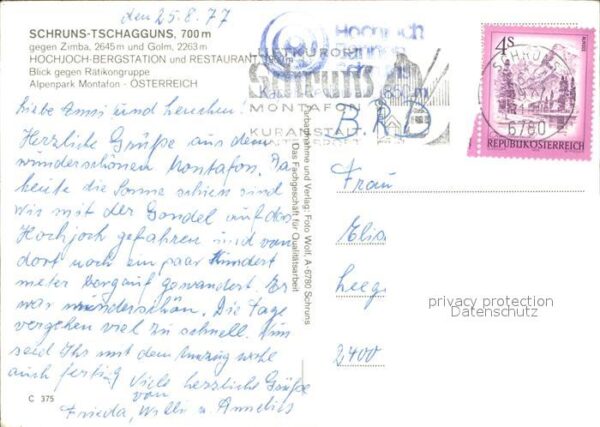 den 25.8.77
SCHRUNS-TSCHAGGUNS, 700 m
gegen Zimba, 2645 m und Golm, 2263 m
HOCHJOCH-BERGSTATION und RESTAURANT
Blick gegen Rätikongruppe
Alpenpark Montafon - ÖSTERREICH
Liebe Emmi und Lenchen!
Herzliche Grüße aus dem
wunderschönen Montafon. Da
heute die Sonne schien sind
wir mit der Gondel auf das
Hochjoch gefahren und von
dort noch ein paar Hundert
meter bergauf gewandert. Es
war wunderschön. Die Tage
vergehen viel zu schnell. Nun
seid Ihr mit dem Umzug wohl
auch fertig? Viele herzliche Grüße
von
Frieda, Willi u. Annelies
C 375
Farbaufnahme und Verlag: Foto Wolf, A-6780 Schruns
Das Fachgeschäft für Qualitätsarbeit
LUFTKURORT
Schruns
MONTAFON
KURANSTALT
Hochjoch
4S
SCHRUNS
6780
REPUBLIK ÖSTERREICH
BRD
Frau
Elis
Leeg
2400
privacy protection
Datenschutz